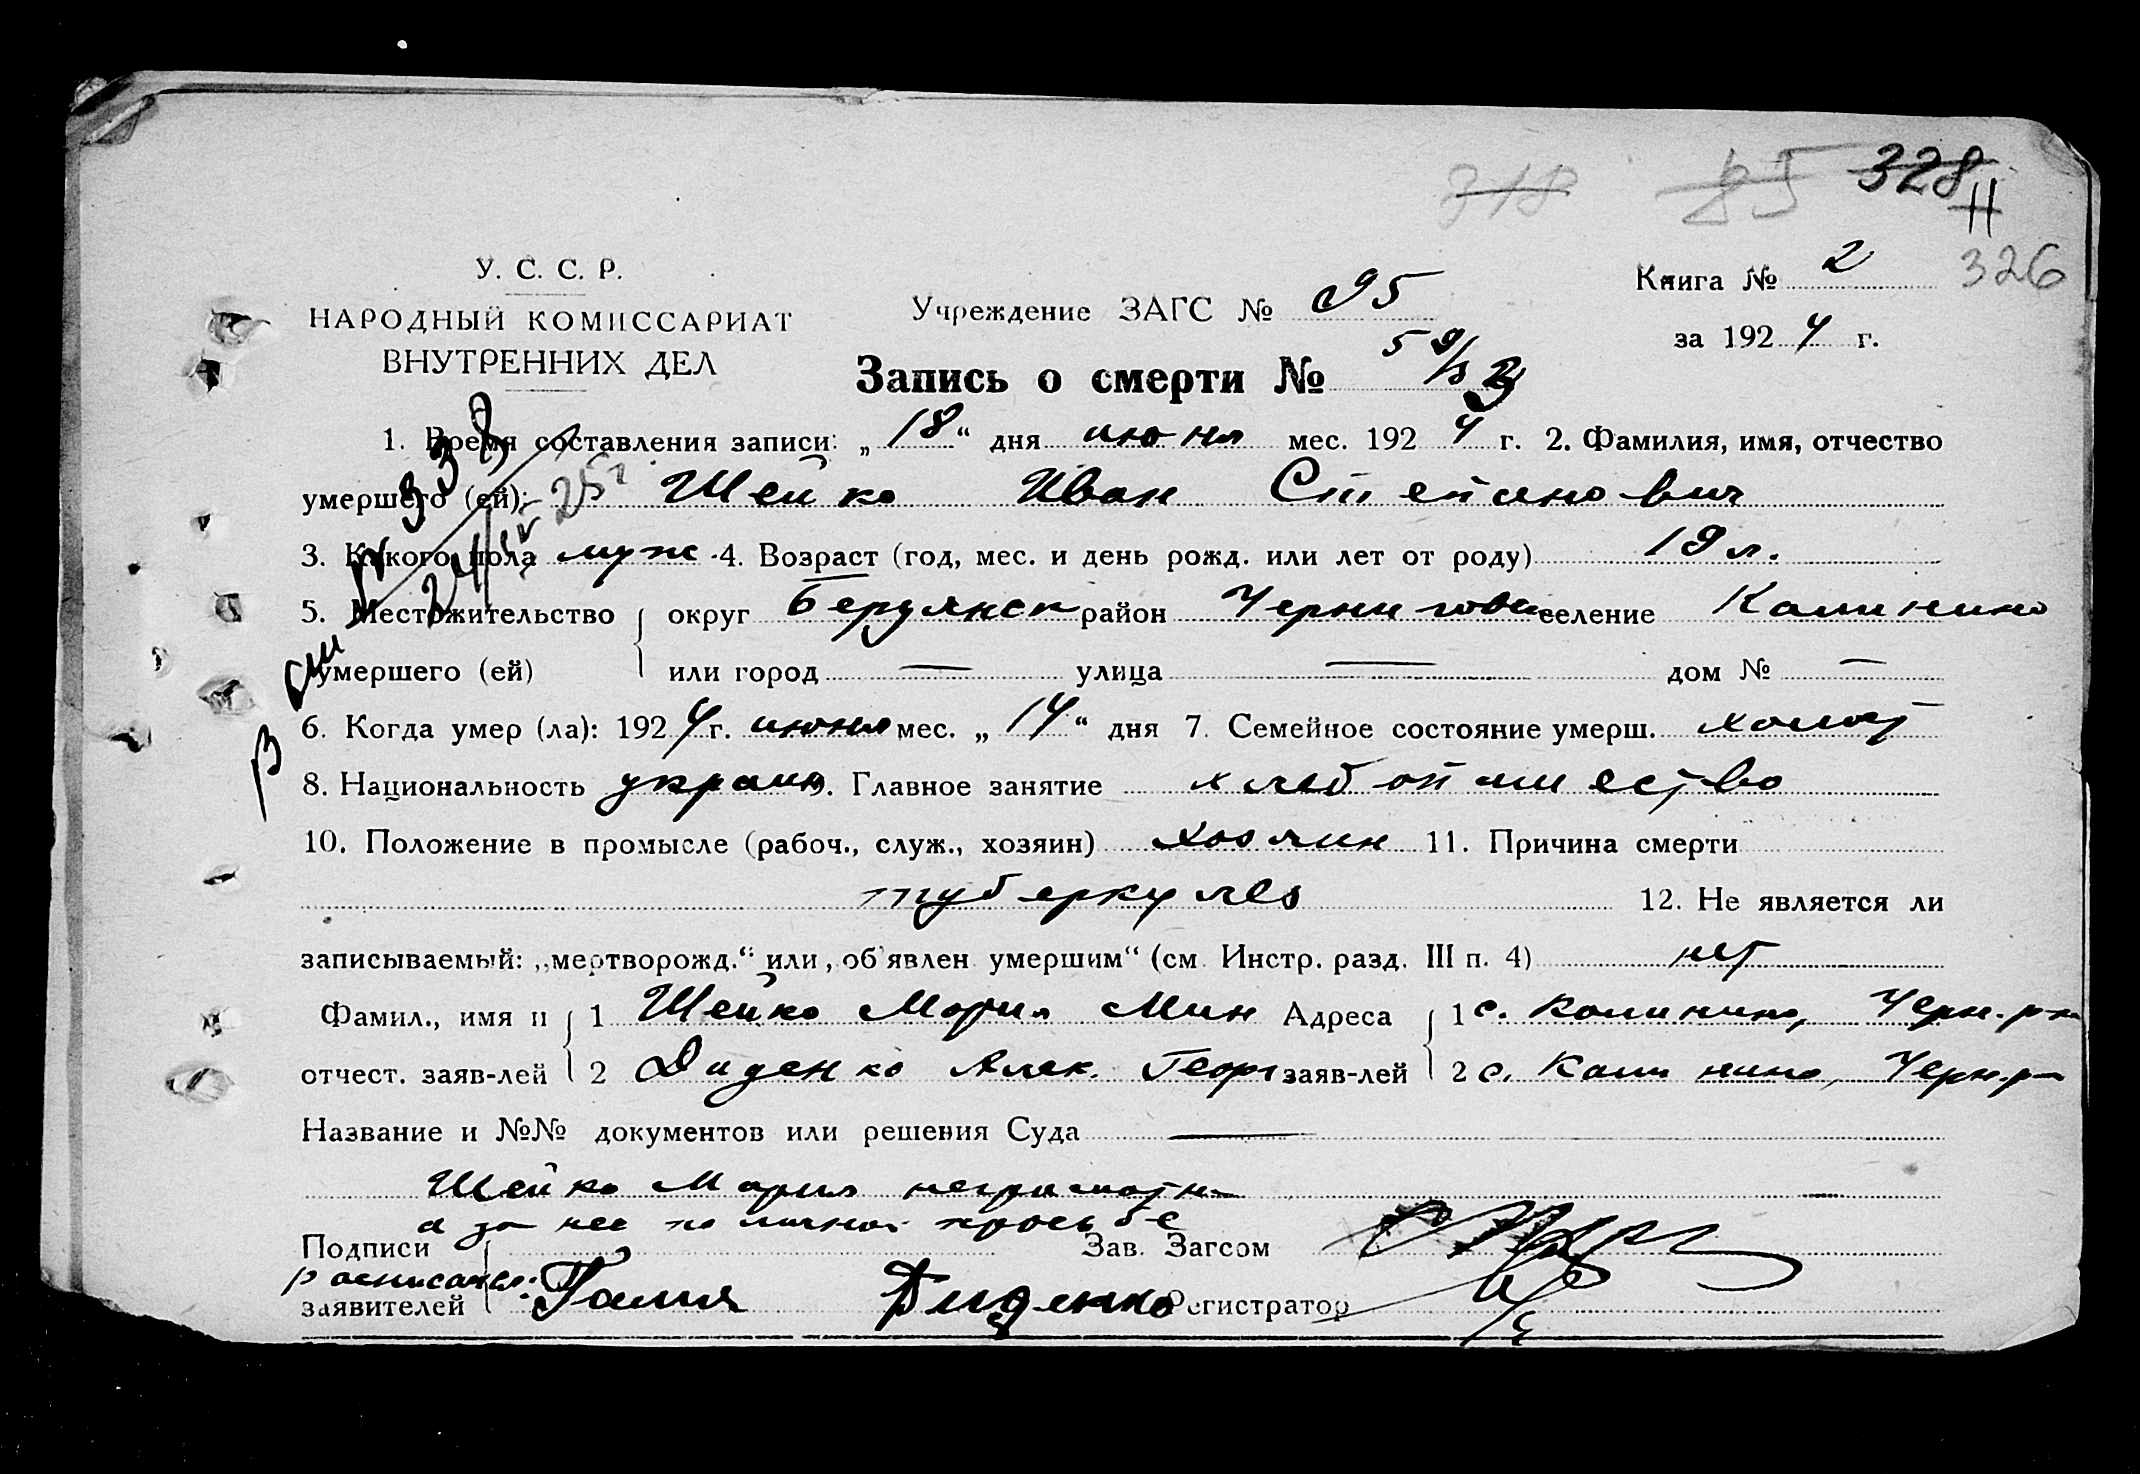 318 85 328
11
326
У. С. С. Р.
НАРОДНЫЙ КОМИССАРИАТ
ВНУТРЕННИХ ДЕЛ
Учреждение ЗАГС № 95
Книга № 2
за 1924 г.
Запись о смерти №
1. Время составления записи: „18“ дня июня мес. 1924 г. 2. Фамилия, имя, отчество
умершего (ей): Шейко Иван Степанович
3. Какого пола муж 4. Возраст (год, мес. и день рожд. или лет от роду) 19 л.
5. Местожительство { округ Бердянск район Чернигов селение Калинино
умершего (ей) или город — улица — дом № —
6. Когда умер (ла): 1924 г. июня мес. „14“ дня 7. Семейное состояние умерш. холост
8. Национальность украин. Главное занятие хлебопашество
10. Положение в промысле (рабоч., служ., хозяин) хозяин 11. Причина смерти
туберкулез 12. Не является ли
записываемый: „мертворожд.“ или „об'явлен умершим“ (см. Инстр. разд. III п. 4) нет
Фамил., имя и { 1 Шейко Мария Мин Адреса { 1 с. Калинино, Черн. р-н
отчест. заяв-лей 2 Диденко Алек. Георг заяв-лей 2 с. Калинино, Черн. р-н
Название и №№ документов или решения Суда —
Шейко Мария неграмотна
а за нее по личной просьбе
Подписи Зав. Загсом
расписалась:
заявителей Галия Диденко Регистратор